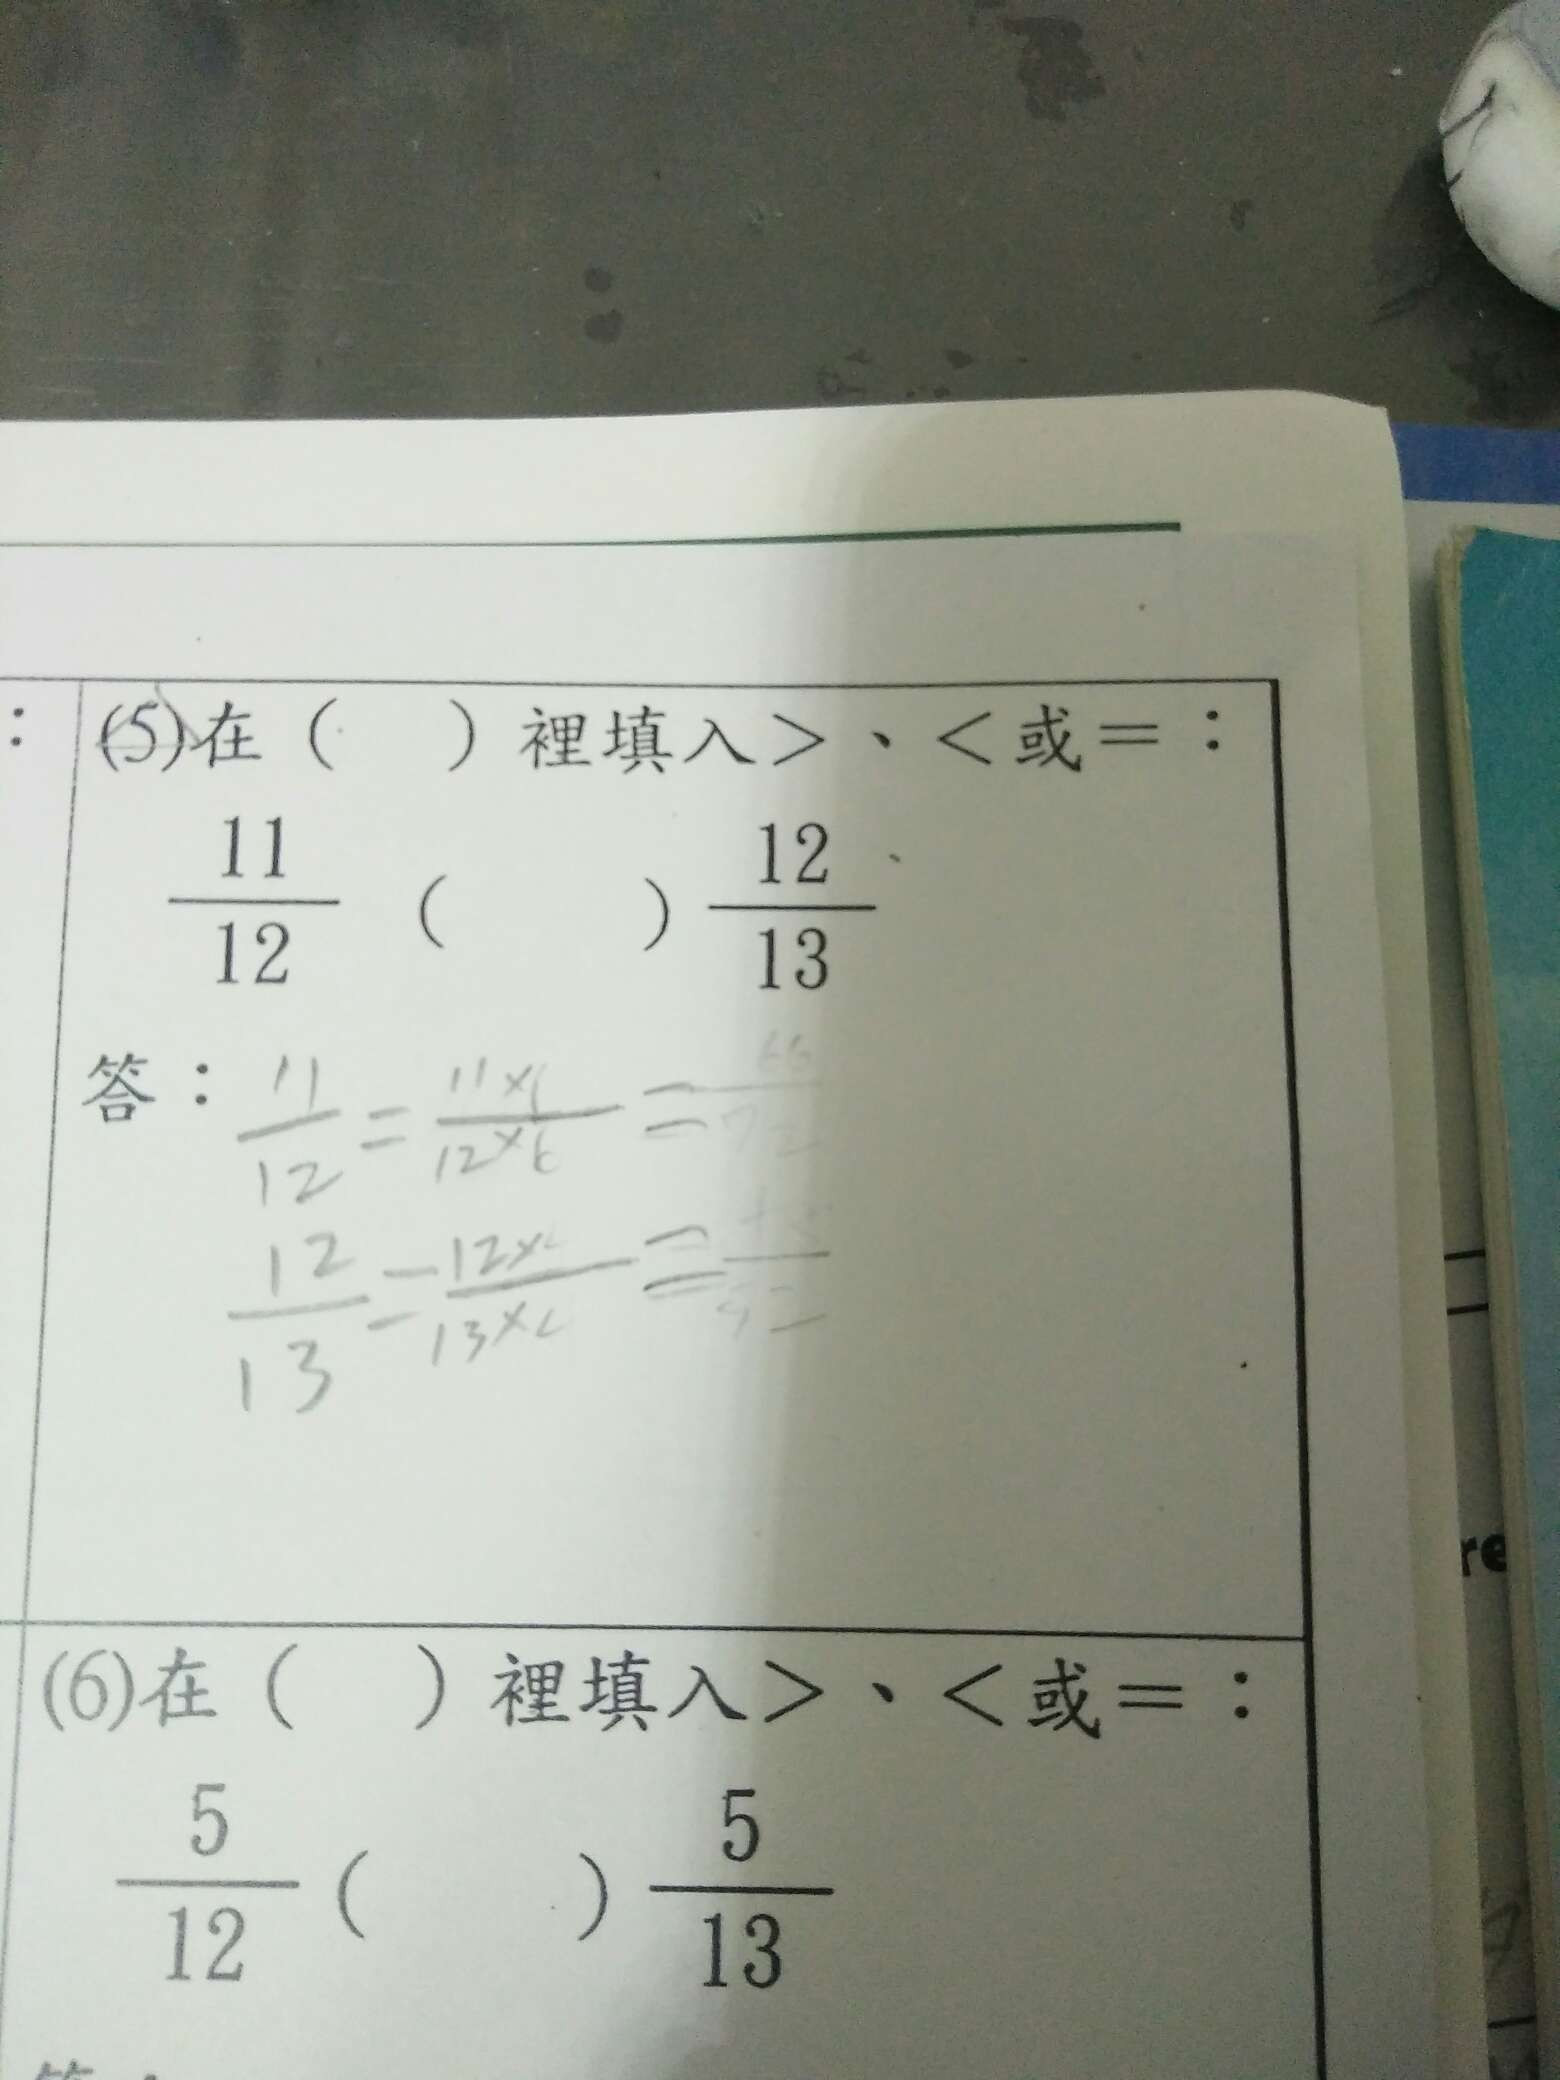 ：
(5)在（　）裡填入＞、＜或＝：
11/12 （　） 12/13
答：11/12 = 11×6/12×6 = 66/72
12/13 = 12×/13×
(6)在（　）裡填入＞、＜或＝：
5/12 （　） 5/13
re